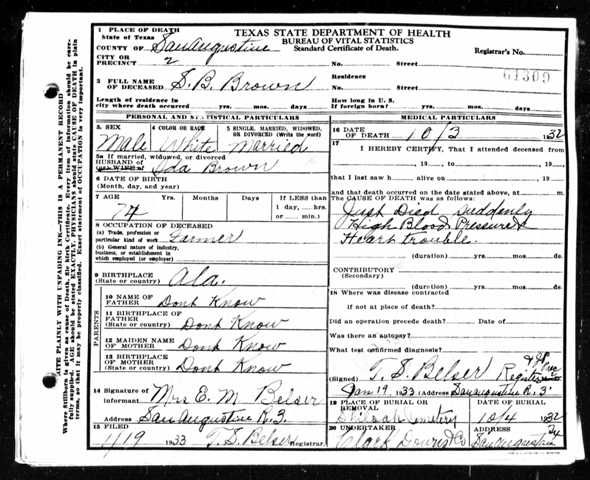 TEXAS STATE DEPARTMENT OF HEALTH
BUREAU OF VITAL STATISTICS
Standard Certificate of Death.
Registrar's No.
1 PLACE OF DEATH
State of Texas
COUNTY OF San Augustine
CITY OR PRECINCT 2 No. Street
2 FULL NAME OF DECEASED S. B. Brown
Residence
No. Street
Length of residence in city where death occurred yrs. mos. days.
How long in U. S. if foreign born? yrs. mos. days.
PERSONAL AND STATISTICAL PARTICULARS
3. SEX Male
4 COLOR OR RACE White
5 SINGLE, MARRIED, WIDOWED, OR DIVORCED (Write the word) Married
5a If married, widowed, or divorced
HUSBAND OF Ida Brown
6 DATE OF BIRTH
(Month, day, and year)
7 AGE Years 74 Months Days If LESS than 1 day, hrs. or min.
8 OCCUPATION OF DECEASED
(a) Trade, profession or particular kind of work Farmer
(b) General nature of industry, business, or establishment in which employed (or employer)
9 BIRTHPLACE Ala.
(State or country)
PARENTS
10 NAME OF FATHER Dont Know
11 BIRTHPLACE OF FATHER Dont Know
(State or country)
12 MAIDEN NAME OF MOTHER Dont Know
13 BIRTHPLACE OF MOTHER Dont Know
(State or country)
14 Signature of informant Mrs E. M. Belser
Address San Augustine R. 3.
15 FILED 19 33 T. S. Belser Registrar.
MEDICAL PARTICULARS
16 DATE OF DEATH 10/3 1932
17 I HEREBY CERTIFY, That I attended deceased from
, 19 to , 19
that I last saw h alive on , 19
and that death occurred on the date stated above, at m.
The CAUSE OF DEATH was as follows:
Just Died Suddenly
High Blood Pressure &
Heart trouble.
(duration) yrs. mos. ds.
CONTRIBUTORY
(Secondary)
(duration) yrs. mos. ds.
18 Where was disease contracted
if not at place of death?
Did an operation precede death? Date of
Was there an autopsy?
What test confirmed diagnosis?
(Signed) T. S. Belser Registrar
Jan 19, 1933 Address San Augustine R. 3.
19 PLACE OF BURIAL OR REMOVAL Cemetery
DATE OF BURIAL 10/4 1932
20 UNDERTAKER Clark Co
ADDRESS San Augustine